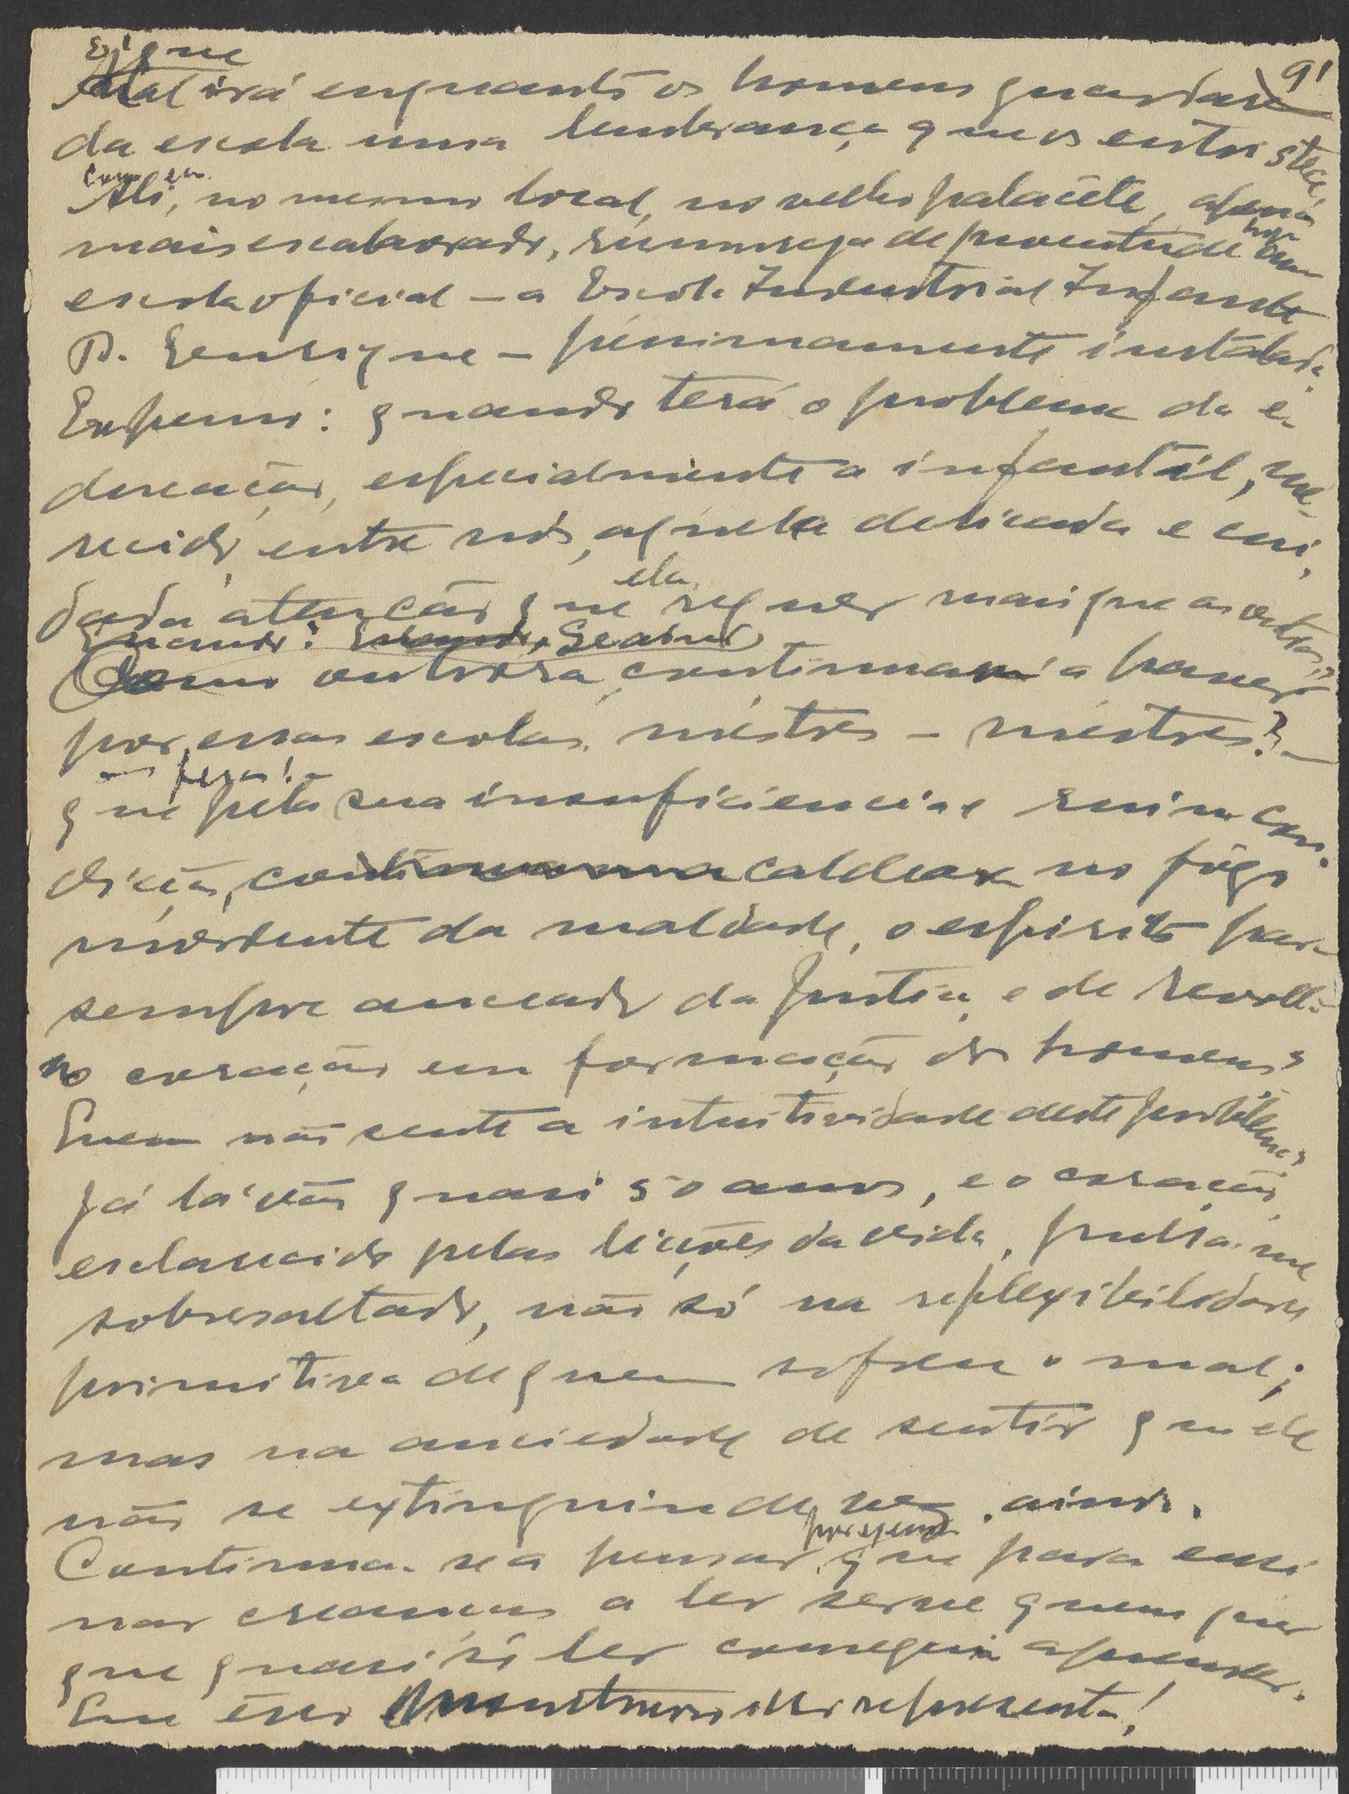 91
E que
Mal irá enquanto os homens guardarem
da escola uma lembrança que os entristeça
Ali, no mesmo local, no velho palacete, apenas
mais escalavrado, regorgita de juventude hoje uma
escola oficial — a Escola Industrial Infante
D. Henrique — pessimamente instalada.
E eu penso: quando terá o problema da e-
ducação, especialmente a infantil, me-
recido, entre nós, aquela delicada e cui-
dada atenção que ela requer mais que as outras?
Quando?
Como outrora, continuará a haver
por essas escolas, mestres — mestres? —
feras! —
que pela sua insuficiencia e ruim con-
dição, caldeam no fôgo
mordente da maldade, o espirito para
sempre anceado da justiça e de revolta
no coração em formação dos homens?
Quem não sente a intuitividade deste problema?
Já lá vão quasi 50 anos, e o coração,
esclarecido pelas lições da vida, pulsa-me
sobresaltado, não só na reflexibilidade
primitiva de quem sofreu o mal;
mas na anciedade de sentir que ele
não se extinguiu de vez, ainda.
Continua-se a pensar, por exemplo, que para ensi
nar creanças a ler serve quem por
que quasi só ler conseguiu aprender.
Que êrro monstruoso isso representa!